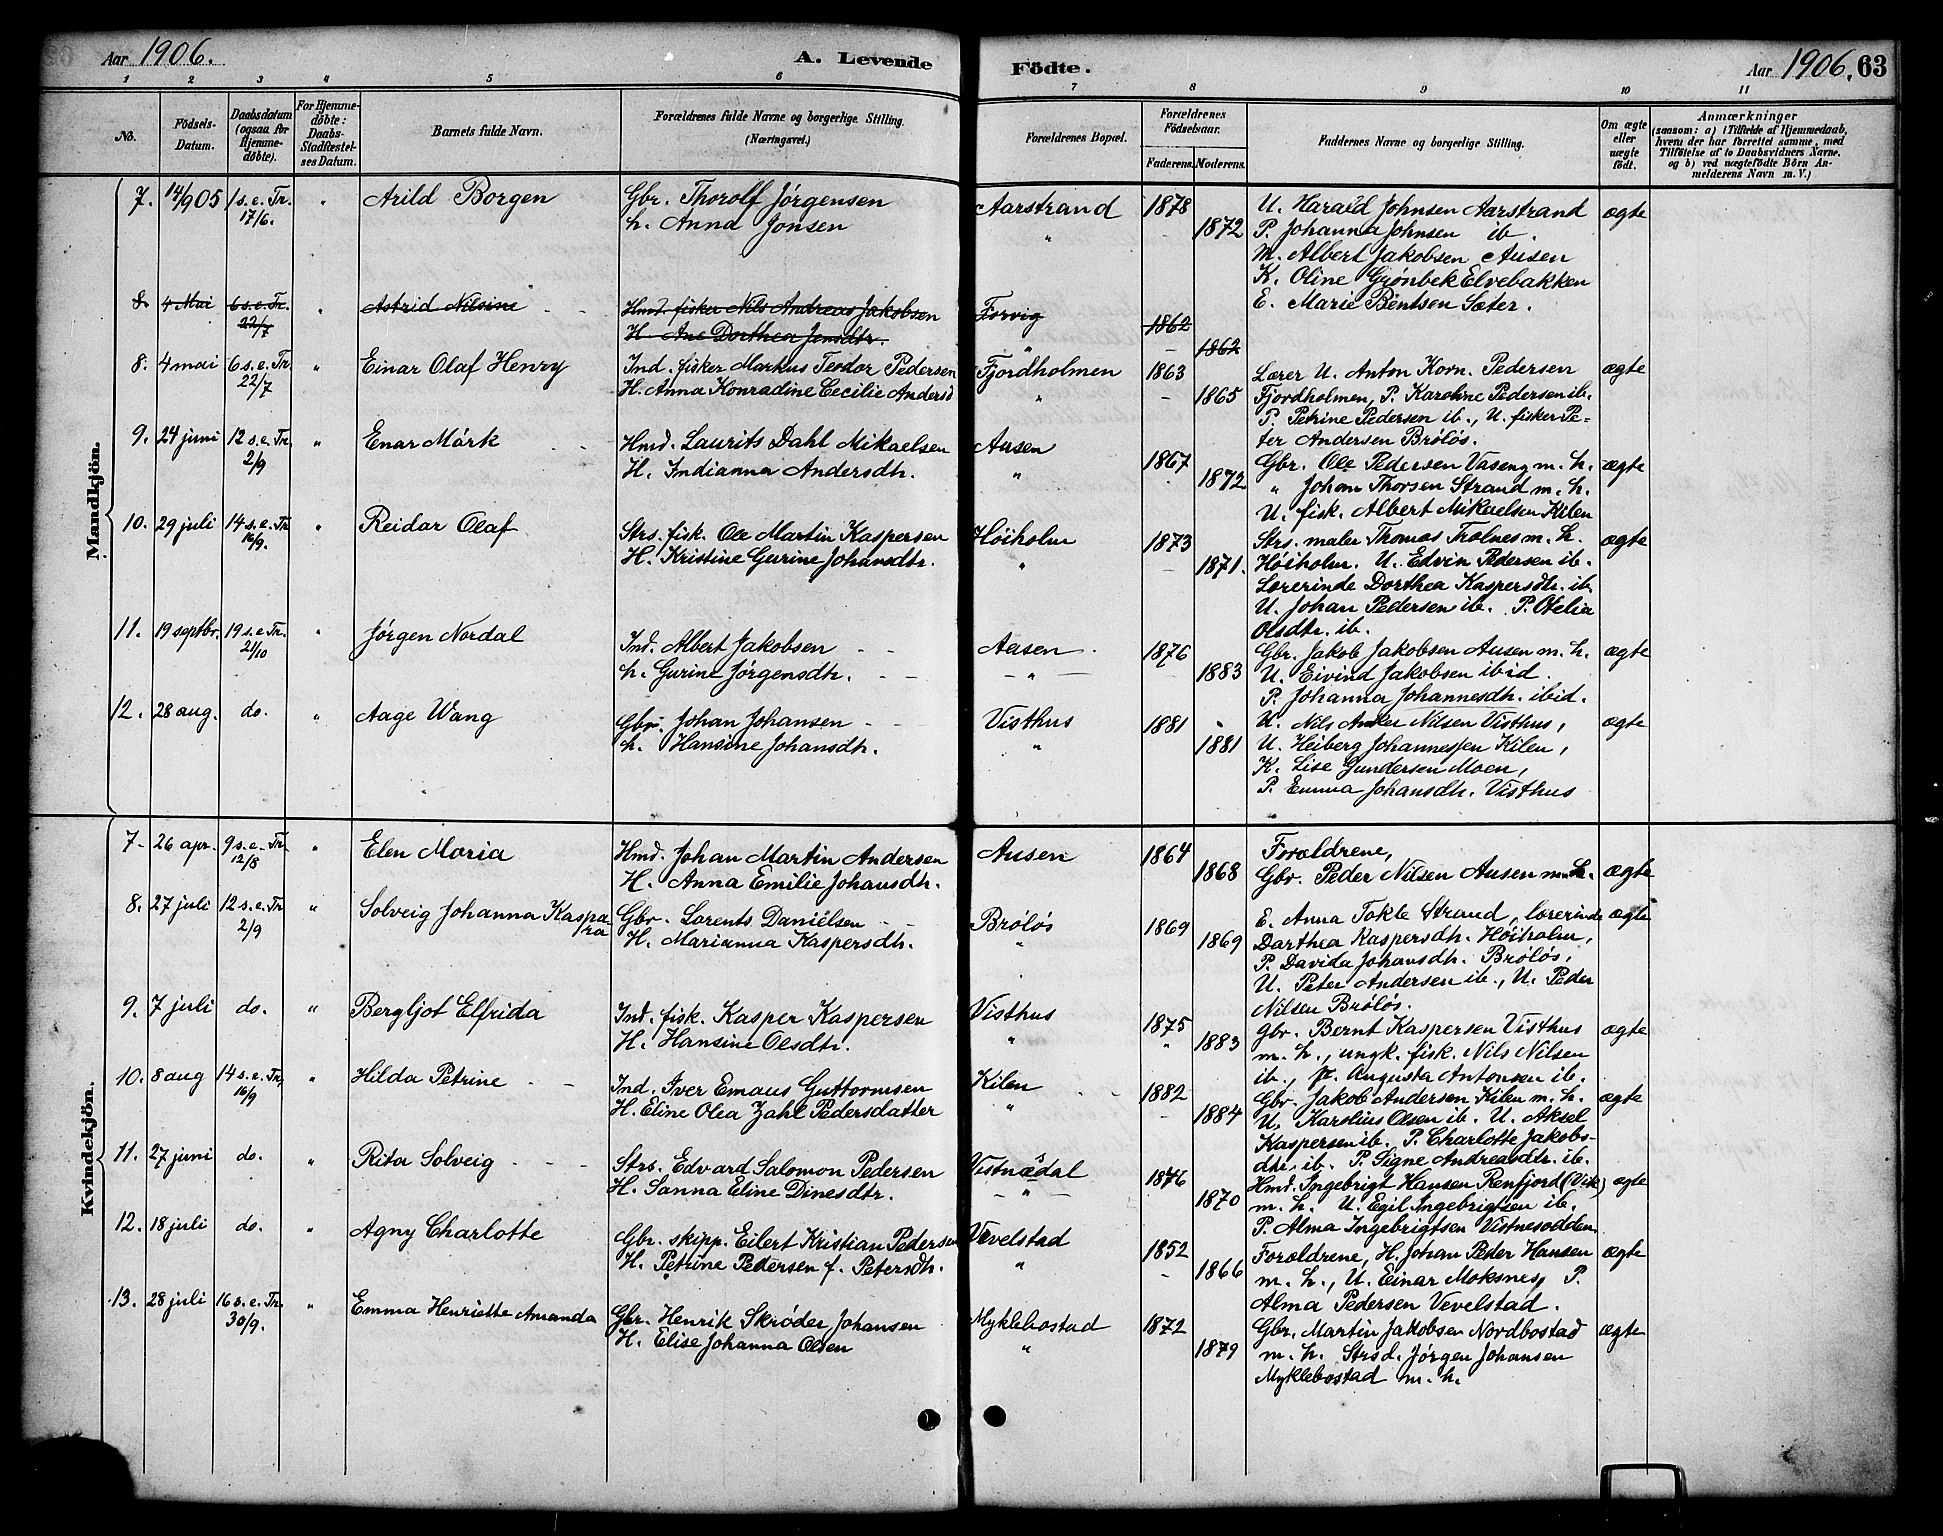 Aar 1906. A. Levende Födte. Aar 1906. 63
1 2 3 4 5 6 7 8 9 10 11
No. Födsels-Datum. Daabsdatum (ogsaa for Hjemme-döbte). For Hjemme-döbte: Daabs-Stadfæstel-ses Datum. Barnets fulde Navn. Forældrenes fulde Navne og borgerlige Stilling. (Næringsvei.) Forældrenes Bopæl. Forældrenes Födselsaar. Faderens. Moderens. Faddernes Navne og borgerlige Stilling. Om ægte eller uægte födt. Anmærkninger (saasom: a) i Tilfælde af Hjemmedaab, hvem der har forrettet samme, med Tilföielse af to Daabsvidners Navne, og b) ved uægtefödte Börn An-melderens Navn m. V.)
Mandkjön.
7. 14/9 05 1 s.e. Tr. 17/6. " Arild Borgen Gbr. Thorolf Jørgensen Aarstrand 1878 U. Harald Johnsen Aarstrand ægte
h. Anna Jonsen " 1872 P. Johanna Johnsen ib.
M. Albert Jakobsen Ausen
K. Oline Grønbek Elvebakken
E. Marie Bentsen Sæter.
8. 4 Mai 6 s.e. Tr. 22/7 " Astrid Nilsine Hmd. fisker Nils Andreas Jakobsen Forvig 1862
H. Ane Dorthea Jensdtr. " 1862
8. 4 mai 6 s.e. Tr. 22/7 " Einar Olaf Henry Ind. fisker Markus Teodor Pedersen Fjordholmen 1863 Lærer U. Anton Korn. Pedersen ægte
H. Anna Konradine Cecilie Andersd " 1865 Fjordholmen, P. Karoline Pedersen ib.
P. Petrine Pedersen ib., U. fisker Pe-
ter Andersen Brøløs.
9. 24 juni 12 s.e. Tr. 2/9 " Enar Mørk Hmd. Laurits Dahl Mikaelsen Aasen 1867 Gbr. Ole Pedersen Vaseng m. h. ægte
H. Indianna Andersdh. " 1872 " Johan Thorsen Strand m. h.
U. fisk. Albert Mikaelsen Kilen
10. 29 juli 14 s.e. Tr. 16/9. " Reidar Olaf Strs. fisk. Ole Martin Kaspersen Høiholm 1873 Strs. maler Thomas Trolnes m. h. ægte
H. Kristine Gurine Johansdtr. " 1871. Høiholm. U. Edvin Pedersen ib.
Lærerinde Dorthea Kaspersdtr. ib.
U. Johan Pedersen ib. P. Ofelia
Olsdtr. ib.
11. 19 septbr. 19 s.e. Tr. 21/10 " Jørgen Nordal Ind. Albert Jakobsen Aasen 1876 Gbr. Jakob Jakobsen Ausen m. h. ægte
h. Gurine Jørgensdh. " 1883 U. Eivind Jakobsen ibid.
P. Johanna Johannesdh. ibid.
12. 28 aug. do. " Aage Wang Gbr. Johan Johansen Visthus 1881 U. Nils Anker Nilsen Visthus, ægte
h. Hansine Johansdh. " 1881 U. Heiberg Johannesen Kilen,
K. Lise Gundersen Moen,
P. Emma Johansdh. Visthus
Kvindekjön.
7. 26 apr. 9 s.e. Tr. 12/8 " Elen Maria Hmd. Johan Martin Andersen Ausen 1864 Forældrene,
H. Anna Emilie Johansdh. 1868 Gbr. Peder Nilsen Ausen m. h. ægte
8. 27 juli 12 s.e. Tr 2/9 " Solveig Johanna Kaspara Gbr. Lorents Daniélsen Brøløs 1869 E. Anna Tokle Strand, lærerinde ægte
H. Marianna Kaspersdh. " 1869 Darthea Kaspersdh. Høiholm,
P. Davida Johansdh. Brøløs,
U. Peter Andersen ib., U. Peder
Nilsen Brøløs.
9. 7 juli do. " Bergljot Elfrida Ind. fisk. Kasper Kaspersen Visthus 1875 Gbr. Bernt Kaspersen Visthus ægte
H. Hansine Olsdtr. " 1883 m. h., ungk. fisk. Nils Nilsen
ib., p. Augusta Antonsen ib.
10. 8 aug 14 s.e. Tr. 16/9 " Hilda Petrine Ind. Iver Emaus Guttormsen Kilen 1882 Gbr. Jakob Andersen Kilen m. h. ægte
H. Eline Olea Zahl Pedersdatter " 1884 U. Karolius Olsen ib. U. Aksel
Kaspersen ib. P. Charlotte Jakobs-
dtr. ib. P. Signe Andreasdtr. ib.
11. 27 juni do. " Rita Solveig Strs. Edvard Salomon Pedersen Vistnæsdal 1876 Hmd. Ingebrigt Hansen Renfjord (Vik) ægte
H. Sanna Eline Dinesdtr. " 1870 m. h. U. Egil Ingebrigtsen ib.
P. Alma Ingebrigtsen Vistnesodden
12. 18 juli do. " Agny Charlotte Gbr. skipp. Eilert Kristian Pedersen Vevelstad 1852 Forældrene, H. Johan Peder Hansen ægte
H. Petrine Pedersen f. Petersdh. " 1866 m. h., U. Einar Moksnes, P.
Alma Pedersen Vevelstad.
13. 28 juli 16 s.e. Tr. 30/9. " Emma Henriette Amanda Gbr. Henrik Skrøder Johansen Myklebostad 1872 Gbr. Martin Jakobsen Nordbostad ægte
H. Elise Johanna Olsen " 1879 m. h. Strsd. Jørgen Johansen
Myklebostad m. h.